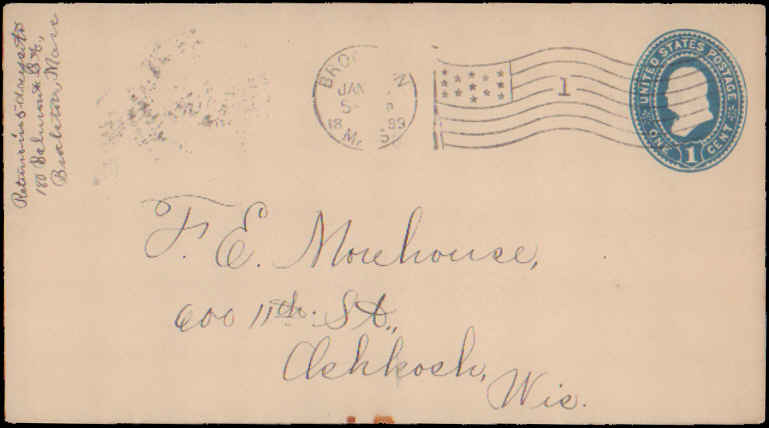 Return in 5 days to
180 Belmont St.,
Brockton Mass
BRO N
JAN
5
18 99
MASS
1
UNITED STATES POSTAGE
ONE 1 CENT
F. E. Morehouse,
600 11th. St.,
Oshkosh,
Wis.